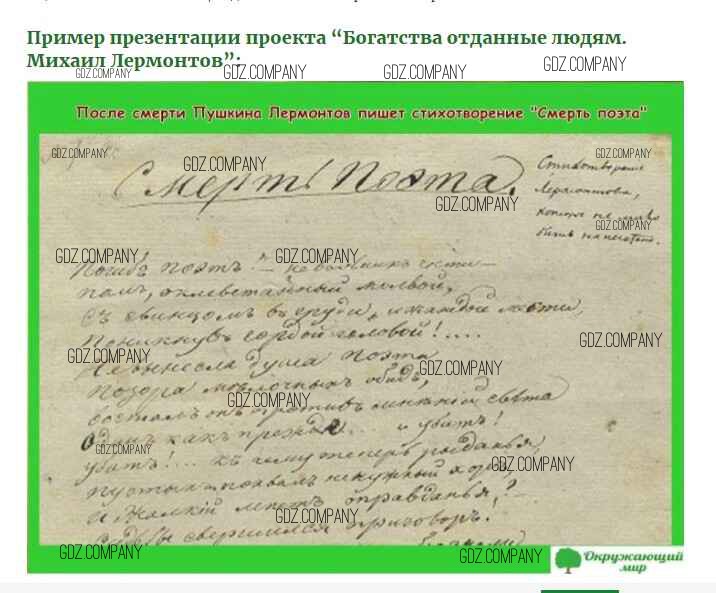 Пример презентации проекта “Богатства отданные людям.
Михаил Лермонтов”:
GDZ.COMPANY GDZ.COMPANY GDZ.COMPANY GDZ.COMPANY
После смерти Пушкина Лермонтов пишет стихотворение "Смерть поэта"
GDZ.COMPANY GDZ.COMPANY GDZ.COMPANY
Смерть Поэта.
Стихотворение
Лермонтова,
которое не
быть
GDZ.COMPANY GDZ.COMPANY
GDZ.COMPANY GDZ.COMPANY
Погибъ поэтъ! — невольникъ чести —
палъ, оклеветанный молвой,
Съ свинцомъ въ груди, и жаждой мести,
Поникнувъ гордой головой!....
GDZ.COMPANY
GDZ.COMPANY
Не вынесла душа Поэта
GDZ.COMPANY
позора мелочныхъ обидъ,
возсталъ онъ противъ мнѣній свѣта
GDZ.COMPANY
Одинъ какъ прежде... и убитъ!
GDZ.COMPANY
убитъ!... къ чему теперь рыданья,
GDZ.COMPANY
пустыхъ похвалъ ненужный хоръ,
и жалкій лепетъ оправданья?
GDZ.COMPANY
Судьбы свершился приговоръ.
GDZ.COMPANY GDZ.COMPANY
Окружающий
мир